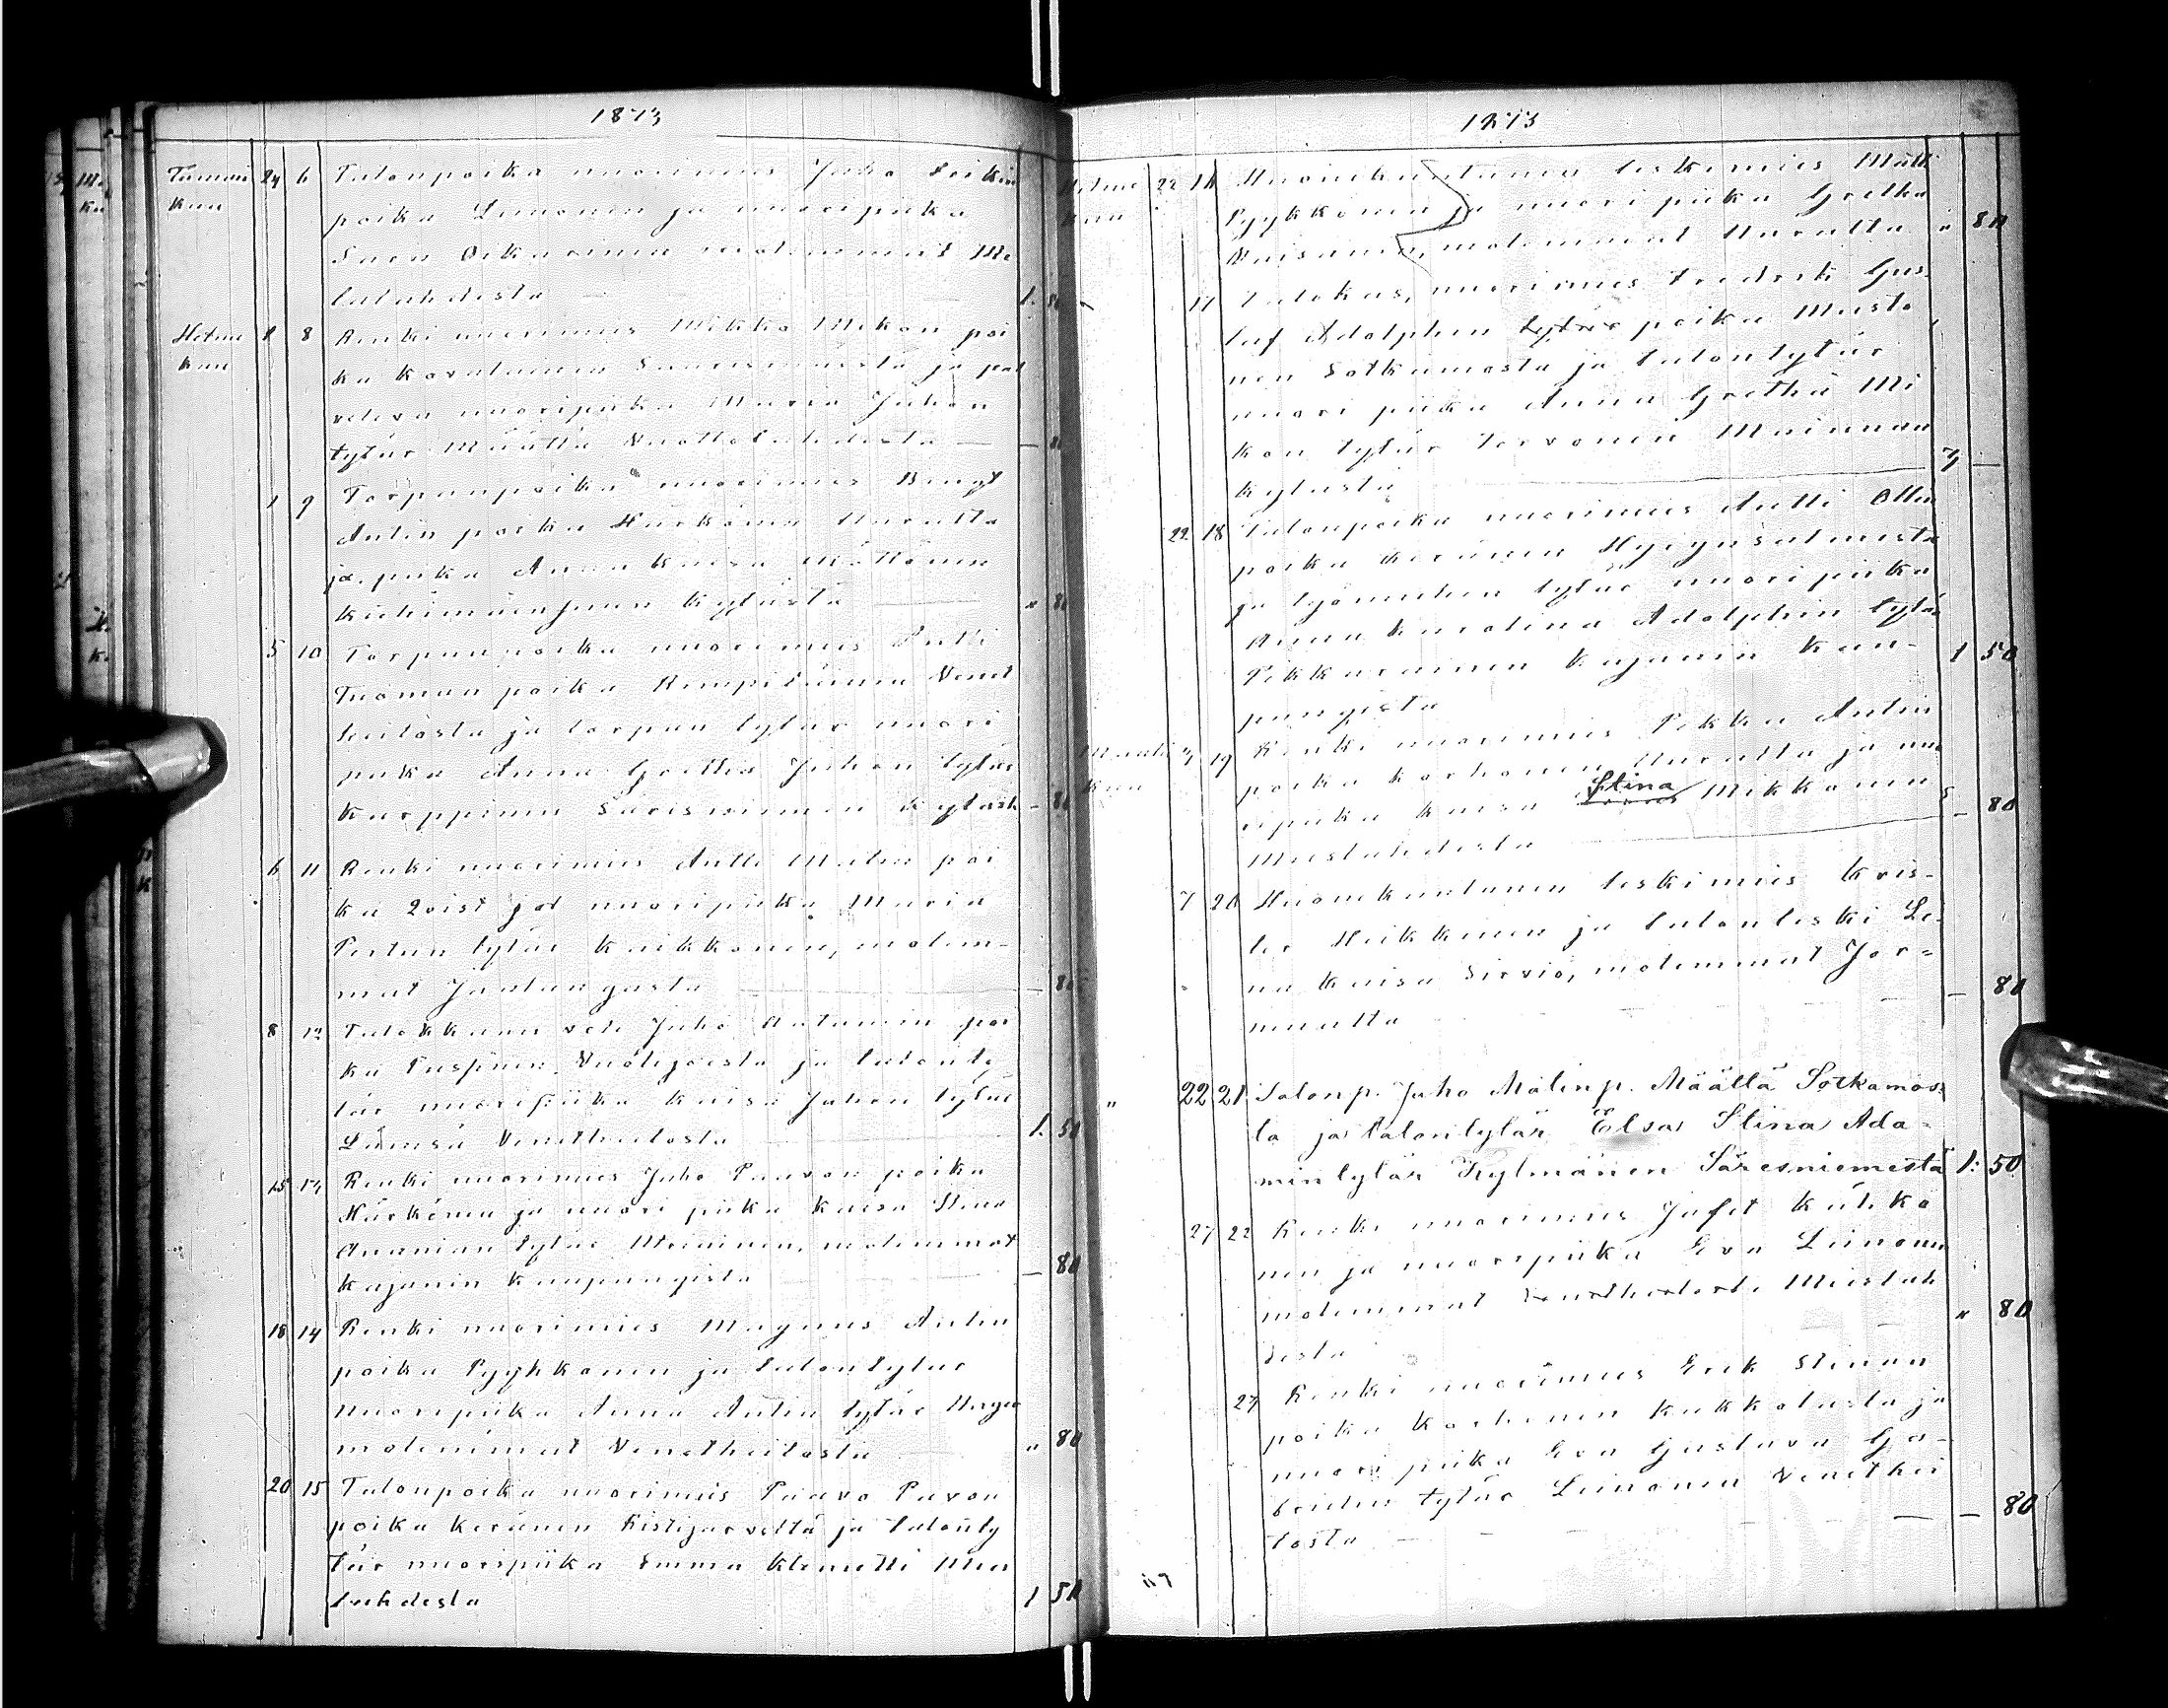 1873
Tammi 24 6 Talonpoika nuorimies Juho Heikin
kuu poika Leinonen ja nuoripiika
Sara Oikarinen molemmat Me
lalahdesta 1. 50
Helmi 1 8 Renki nuorimies Mikko Mikon poi
kuu ka Kovalainen Säresniemestä ja pal
veleva nuoripiika Maria Juhon
tytär Määttä Vuottolahdesta — 80
1 9 Torpanpoika nuorimies Bengt
Antin poika Härkönen Uuralta
ja piika Anna Kaisa Möttönen
kylästä " 80
5 10 Torpanpoika nuorimies Antti
Tuoman poika Kemppainen Venet
heitosta ja torpan tytär nuori
piika Anna Gretha Juhon tytär
Karppinen Säresniemen kylästä – 80
6 11 Renki nuorimies Antti Matin poi
ka Qvist ja nuoripiika Maria
Pertun tytär Kaikkonen, molem-
mat Jaalangasta — 80
8 12 Tulokkaan veli Juho Antamin poi
ka Vuolijoesta ja talonty
tär nuoripiika Kaisa Juhon tytär
Lämsä Venetheitosta 1. 50
15 13 Renki nuorimies Juho Paavon poika
Härkönen ja nuori piika Kaisa Stina
Ananian tytär molemmat
Kajanin kaupungista — 80
18 14 Renki nuorimies Magnus Antin
poika Pyykkönen ja talontytär
nuoripiika Anna Antin tytär
molemmat Venetheitosta " 80
20 15 Talonpoika nuorimies Paavo Pavon
poika Keränen Ristijärveltä ja talonty
tär nuoripiika Emma Klemetti Mies
lahdesta 1 50
1873
Helmi 22 16 Huonekuntanen leskimies Matti
kuu Pyykkönen ja nuori piika Gretha
Väisänen, molemmat Uuralta " 80
17 Tulokas, nuorimies Fredrik Gus
taf Adolphin poika Musto
nen Sotkamosta ja talontytär
nuori piika Anna Gretha Mi
kon tytär Tervonen Mainuan
kylästä 3 —
22 18 Talonpoika nuorimies Antti Ollin
poika Keränen Hyrynsalmesta
ja työmiehen tytär nuori piika
Anna Karolina Adolphin tytär
Pikkarainen Kajanin kau-
pungista 1 50
Maalis 3 19 Renki nuorimies Pekka Antin
kuu poika Korhonen Uuralta ja nuo
ripiika Kaisa Stina Mikkonen
Mieslahdesta – 80
7 20 Huonekuntanen leskimies Kris-
ter Heikkinen ja talonleski Le-
na Kaisa Sirviö, molemmat Jor=
mualta — 80
" 22 21 Talonp. Juho Matinp. Määttä Sotkamos-
ta ja talontytär Elsa Stina Ada-
mintytär Kylmänen Säresniemestä 1: 50
27 22 Renki nuorimies Jafet Kähkö
nen ja nuoripiika Eva Leinonen
molemmat Mieslah
desta " 80
23 Renki nuorimies Erik Stinan
poika Korhonen Kukkolasta ja
nuori piika Eva Gustava Ga-
brielin tytär Leinonen Venethei
tosta — 80